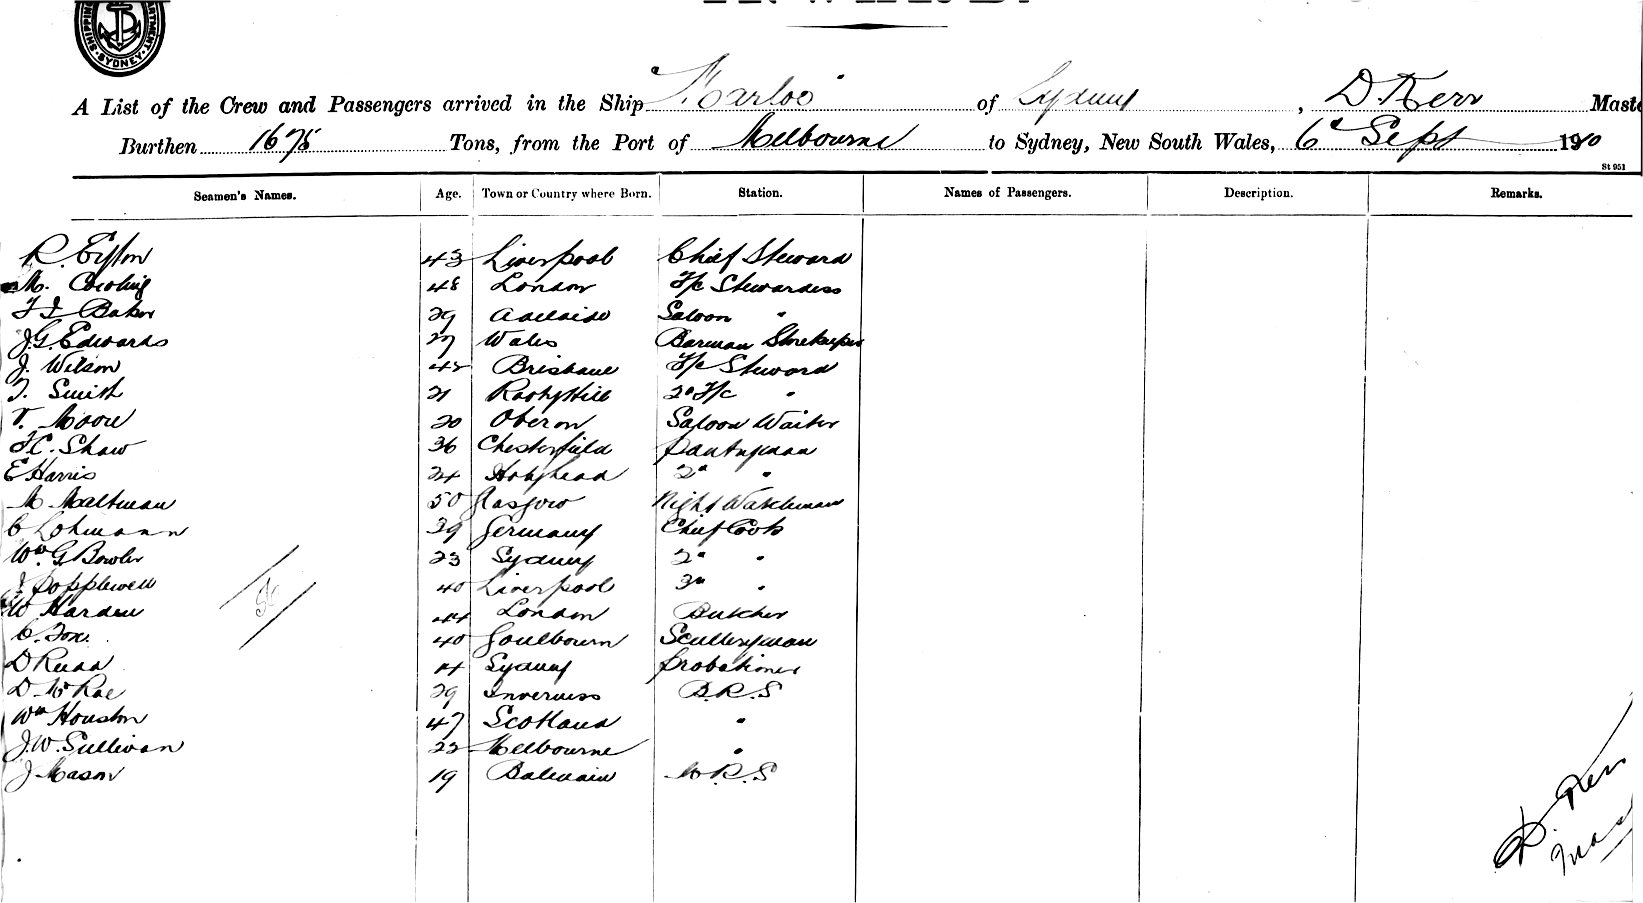 SHIPPING DEPARTMENT SYDNEY
A List of the Crew and Passengers arrived in the Ship "Karloo" of Sydney, D Kerr Maste
Burthen 1675 Tons, from the Port of Melbourne to Sydney, New South Wales, 6th Sept 1910
St 951
Seamen's Names. Age. Town or Country where Born. Station. Names of Passengers. Description. Remarks.
R. 43 Liverpool Chief Steward
M. 48 London F/c Stewardess
Baker 29 Adelaide Saloon "
J.G. Edwards 27 Wales Barman Storekeeper
J. Wilson 42 Brisbane F/c Steward
T. Smith 21 Rooty Hill 2nd F/c "
V. Moore 20 Oberon Saloon Waiter
Shaw 36 Chesterfield Pantryman
E Harris 24 Holyhead 2nd "
M Maltman 50 Glasgow Night Watchman
C Lohmann 39 Germany Chief Cook
Wm G Bowler 23 Sydney 2nd "
J Popplewell 40 Liverpool 3rd "
W Harden 44 London Butcher
C. Fox. 40 Goulbourn Sculleryman
D Rudd 14 Sydney Probationer
D McRae 29 Inverness B.R.S
Wm Houston 47 Scotland "
J.W. Sullivan 22 Melbourne "
J Mason 19 Balmain M.R.S
D. Kerr